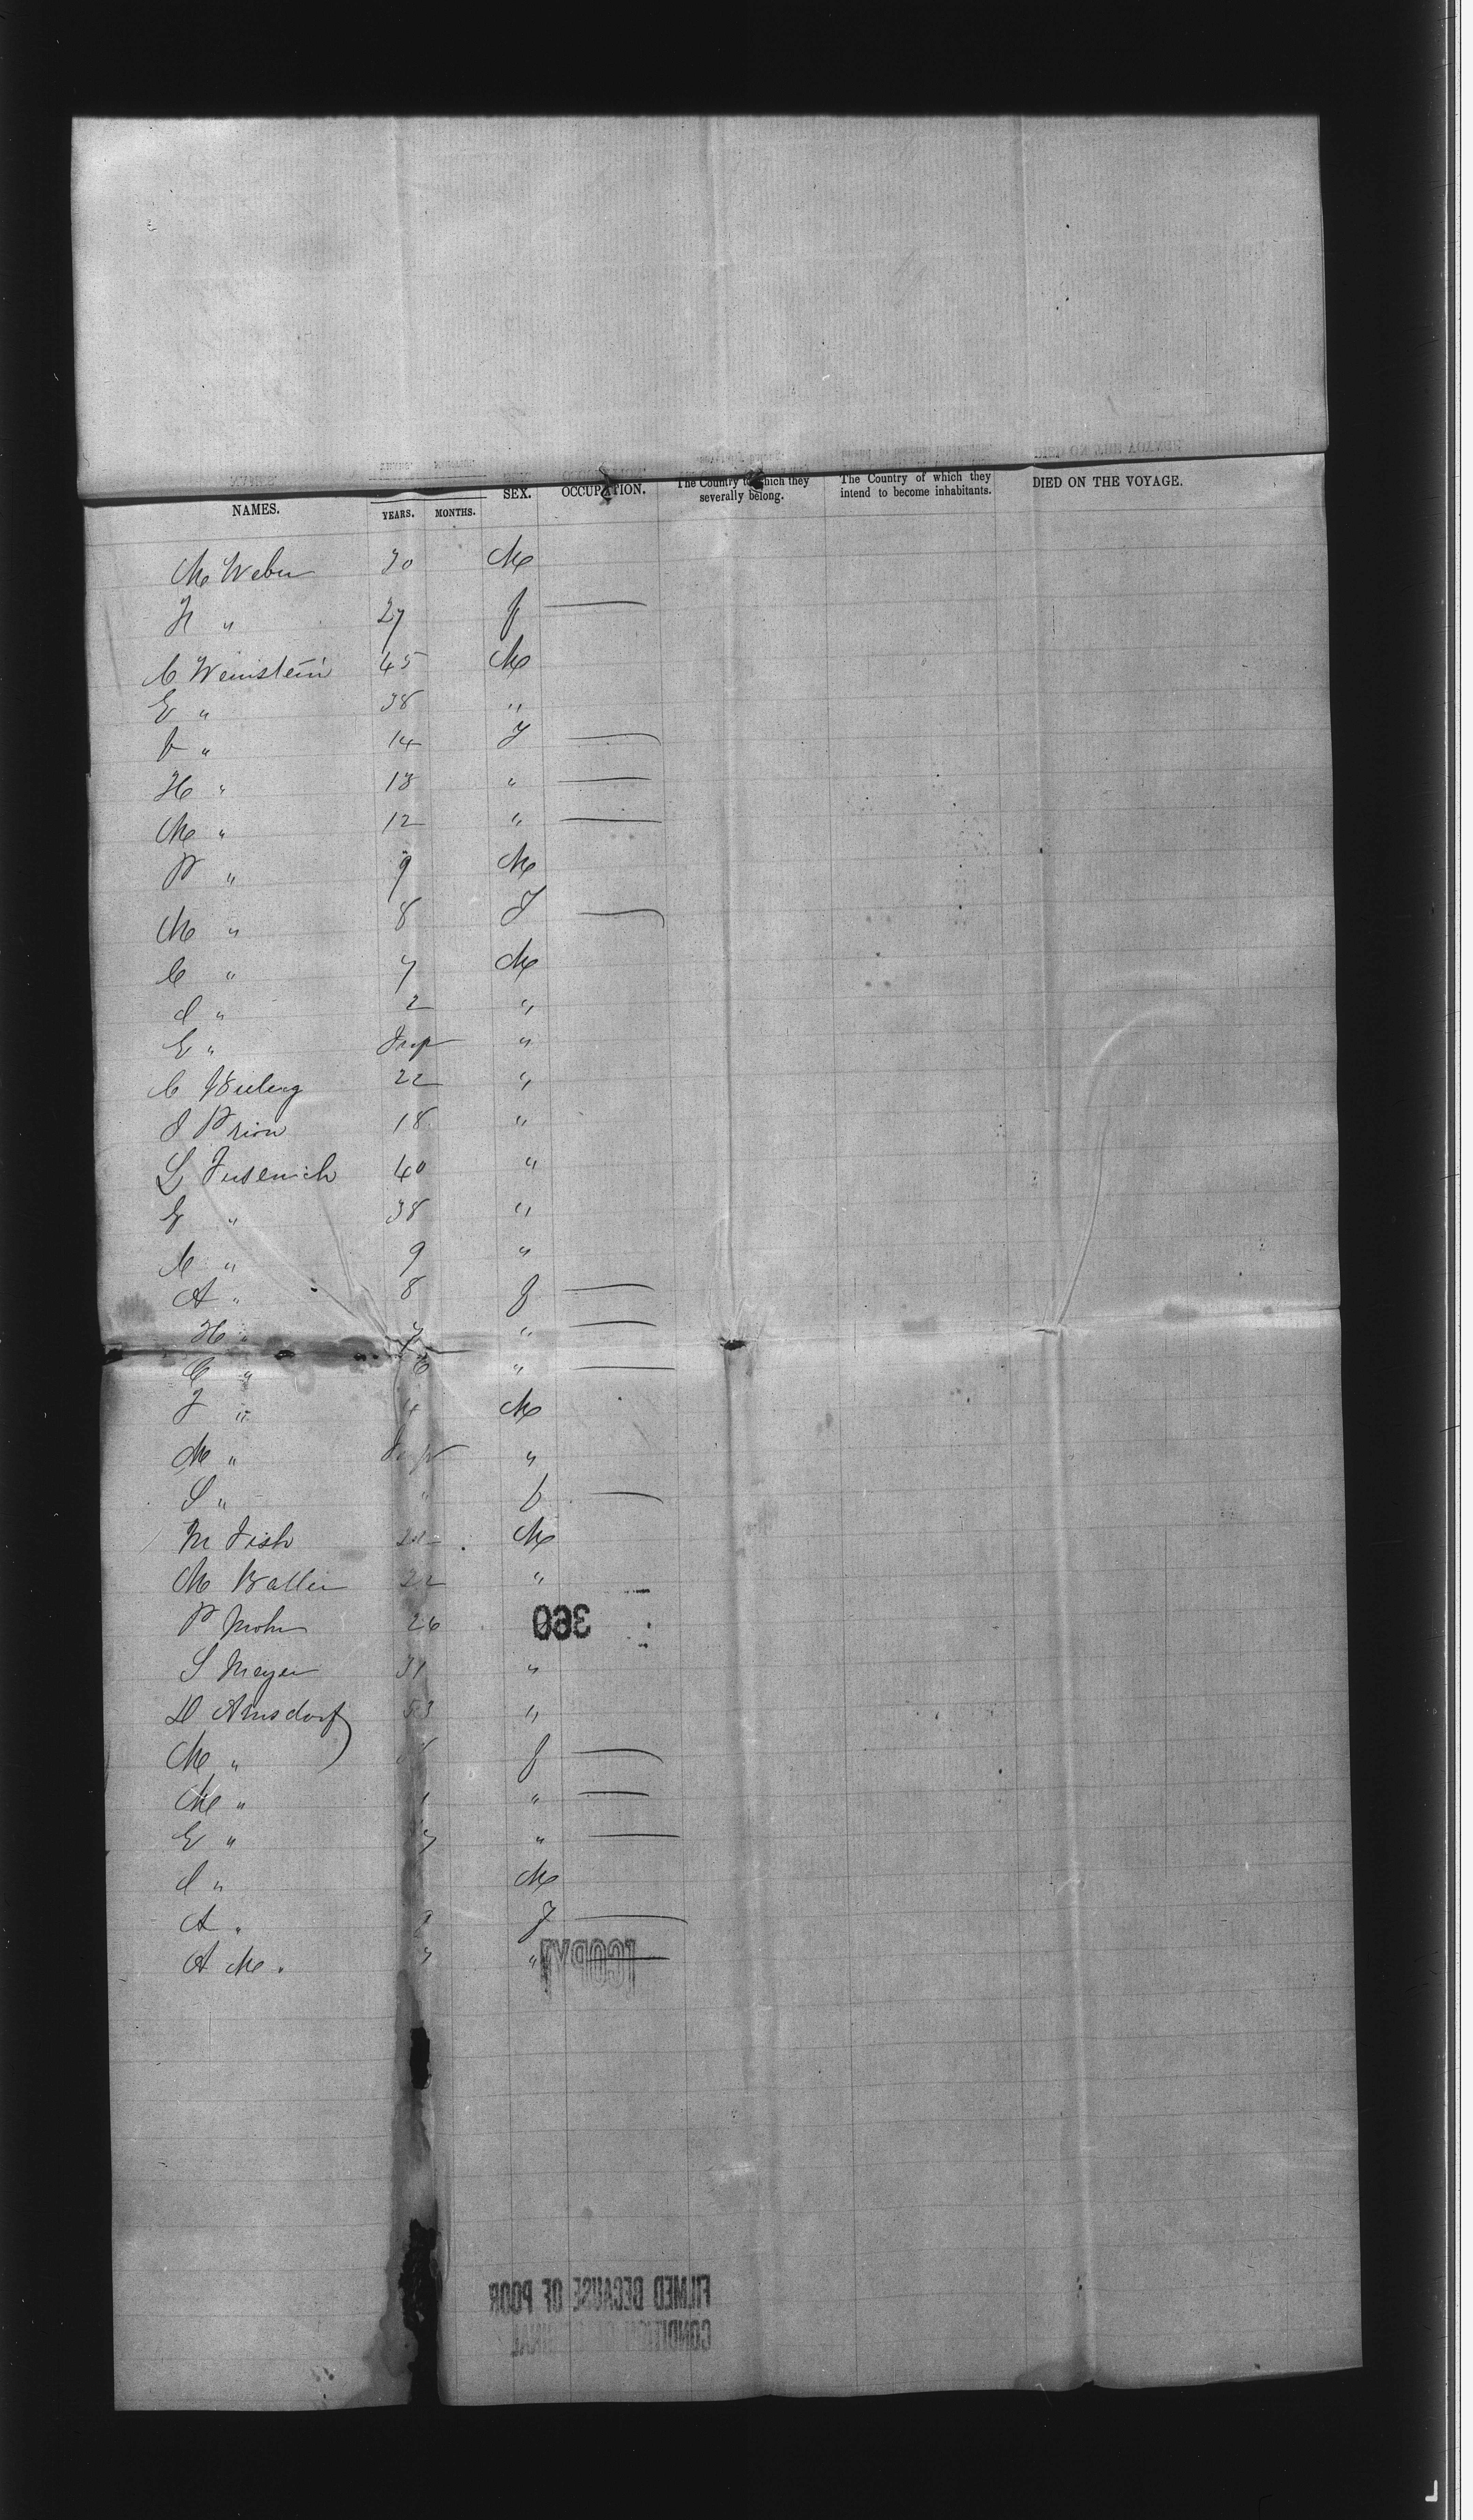 NAMES. YEARS. MONTHS. SEX. OCCUPATION. The Country to which they severally belong. The Country of which they intend to become inhabitants. DIED ON THE VOYAGE.
M Weber 30 M
H " 27 f
C Weinstein 45 M
E " 38 "
f " 14 F
H " 13 "
M " 12 "
P " 9 M
M " 8 F
C " 7 M
J " 2 "
E " Inf "
C 22 "
J Prion 18 "
L 40 "
E " 38 "
C " 9 "
A " 8 f
H " 7 "
C " 6 "
F " 4 M
M " Inf "
S " " f
M Fish 22 M
M Baller 22 "
P Mohr 26
360
S Meyer 31 "
D Arnsdorf 53 "
M " f
M " "
E " 7 "
J " M
A " 9 F
A M " 7 "
[COPY]
FILMED BECAUSE OF POOR
CONDITION OF ORIGINAL